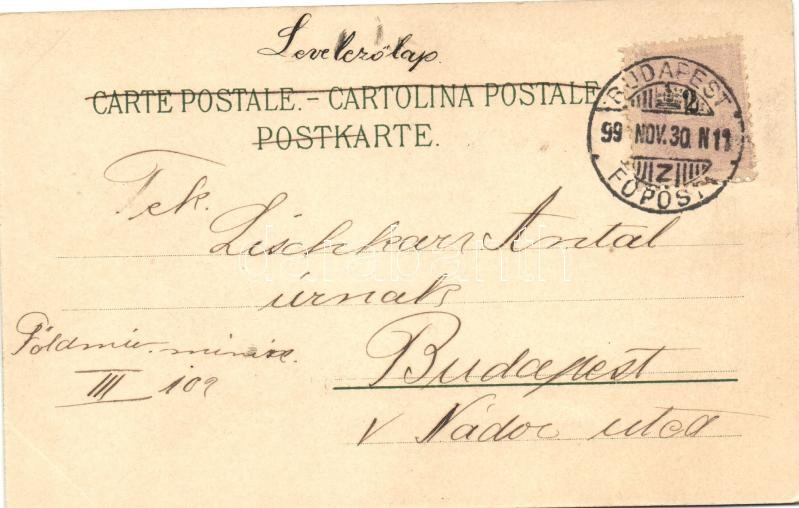 Levelezőlap.
CARTE POSTALE. – CARTOLINA POSTALE
POSTKARTE.
BUDAPEST
2
99 NOV. 30. N 11
Z
FŐPOSTA
Tek.
Lischkar Antal
úrnak
Földmív. minis.
III 109
Budapest
V Nádor utca
darabanth